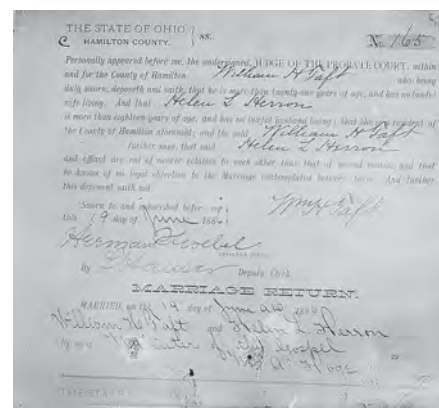 THE STATE OF OHIO,
C HAMILTON COUNTY. } ss.
No. 165
Personally appeared before me, the undersigned, JUDGE OF THE PROBATE COURT, within
and for the County of Hamilton William H Taft who being
duly sworn, deposeth and saith, that he is more than twenty-one years of age, and has no lawful
wife living. And that Helen L Herron
is more than eighteen years of age, and has no lawful husband living; that she is a resident of
the County of Hamilton aforesaid; and the said William H Taft
further says, that said Helen L Herron
and affiant are not of nearer relation to each other than that of second cousin, and that
he knows of no legal objection to the Marriage contemplated between them. And further
this deponent saith not.
Sworn to and subscribed before me,
this 19 day of June 1886
Wm H Taft
Herman
By Deputy Clerk.
MARRIAGE RETURN.
MARRIED, on the 19 day of June
William H Taft and Helen L Herron
by me a Minister of the Gospel